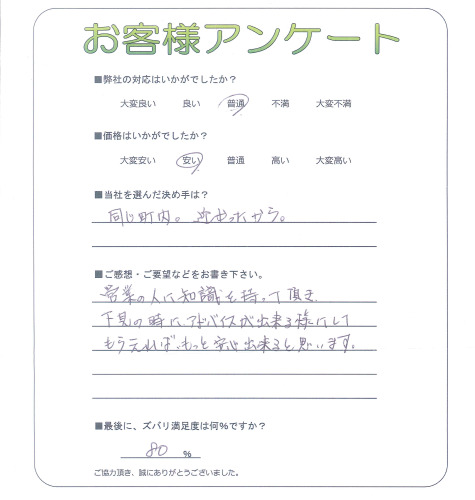 お客様アンケート
■弊社の対応はいかがでしたか？
大変良い 良い 普通 不満 大変不満
■価格はいかがでしたか？
大変安い 安い 普通 高い 大変高い
■当社を選んだ決め手は？
同じ町内。近かったから。
■ご感想・ご要望などをお書き下さい。
営業の人に知識を持って頂き
下見の時に、アドバイスが出来る様にして
もらえれば、もっと安心出来ると思います。
■最後に、ズバリ満足度は何％ですか？
80 ％
ご協力頂き、誠にありがとうございました。